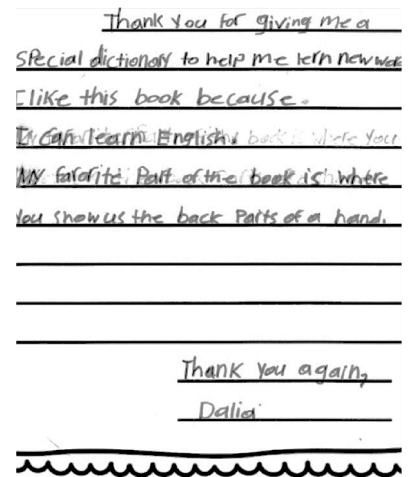 Thank you for giving me a
special dictionary to help me lern new
I like this book because.
I can learn English.
My farorite Part of the book is where
You show us the back Parts of a hand.
Thank you again,
Dalia